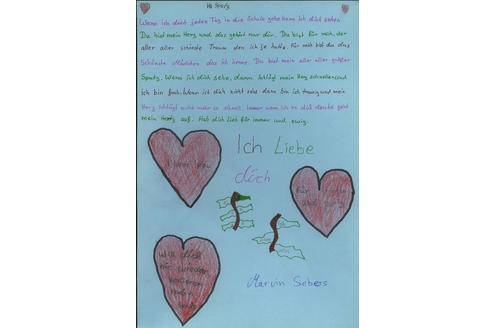 Hi Spatz
Wenn ich dich jeden Tag in die Schule gehe kann ich dich sehen
Du bist mein Herz und das gehört nur dir. Du bist für mich, der
aller aller schönste Traum den ich je hatte. Für mich bist du das
Schönste Mädchen das ich kenne. Du bist mein aller aller größter
Spatz. Wenn ich dich sehe, dann schlägt mein Herz schneller und
Ich bin froh. Wenn ich dich nicht sehe dann bin ich traurig und mein
Herz schlägt nicht mehr so schnell. Immer wenn ich an dich denke geht
mein Herz auf. Hab dich lieb für immer und ewig.
I love you
Ich Liebe
dich
Für
und
Will dich
nie wieder
verlieren
mein
Marvin Sebers